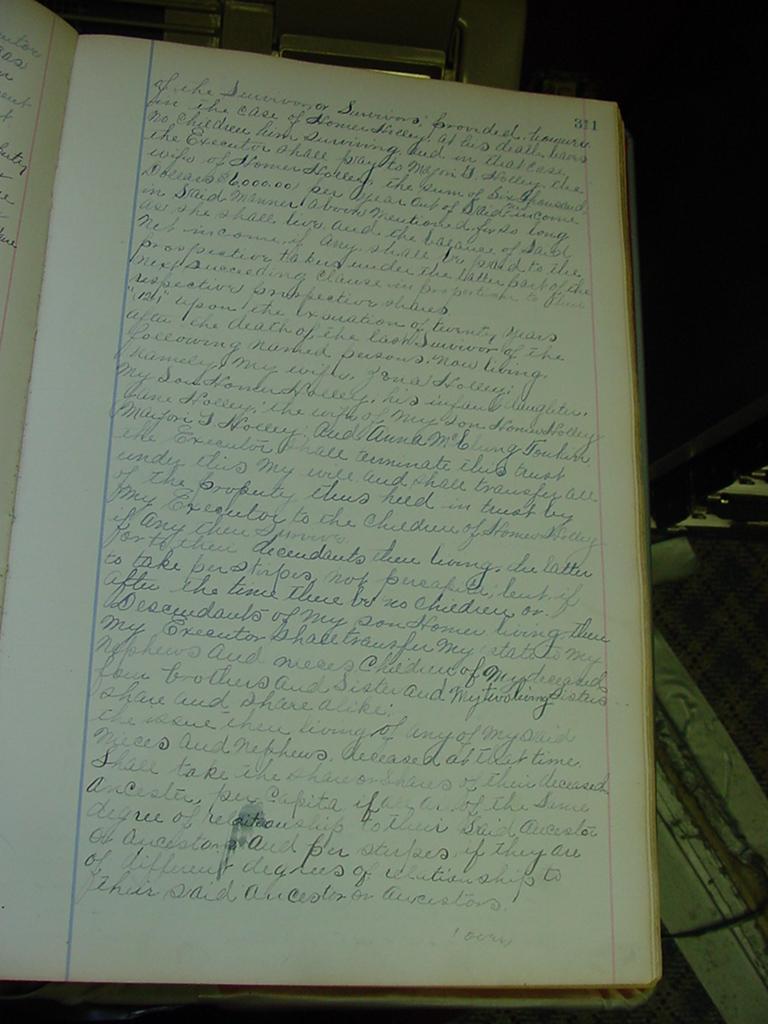 311
of the Survivor or Survivors; provided, however,
in the case of Homer Holley, at his death, leave
no children him surviving, and in that case,
the Executor shall pay to Marjori G. Holley, the
wife of Homer Holley, the sum of Six thousand
Dollars $6,000.00 per year out of Said income
in Said manner above mentioned for so long
as she shall live, and the balance of Said
net income, if any, shall be paid to the
prospective takers under the latter part of the
next succeeding clause in proportion to their
respective prospective shares.
"12" upon the expiration of twenty years
after the death of the last Survivor of the
following named persons, now living,
Namely: My wife, Zona Holley;
My Son Homer Holley, his infant daughter,
June Holley; the wife of My Son Homer Holley
Marjori G Holley; and Anna McClung Tomkins
the Executor shall terminate this trust
under this My will and shall transfer all
of the property thus held in trust by
My Executor to the Children of Homer Holley
if any then Survive
or to their decendants then living, the latter
to take per stirpes, not percapita; but if
after the time there be no children or
Descendants of my son Homer living, then
My Executor Shall transfer My state to My
Nephews and nieces Children of My deceased
four brothers and Sister and My two living Sisters
share and share alike;
the issue then living of any of My said
Nieces and Nephews, deceased at that time
Shall take the share or Shares of their deceased
ancestor, per Capita if all are of the Same
degree of relationship to their Said ancestor
or ancestors and per stirpes, if they are
of different degrees of relationship to
their said ancestor or ancestors.
(over)